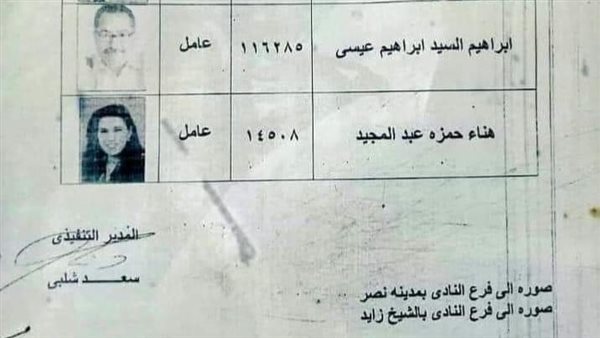 ابراهيم السيد ابراهيم عيسى ١١٦٢٨٥ عامل
هناء حمزه عبد المجيد ١٤٥٠٨ عامل
المدير التنفيذى
سعد شلبى
صوره الى فرع النادى بمدينه نصر
صوره الى فرع النادى بالشيخ زايد